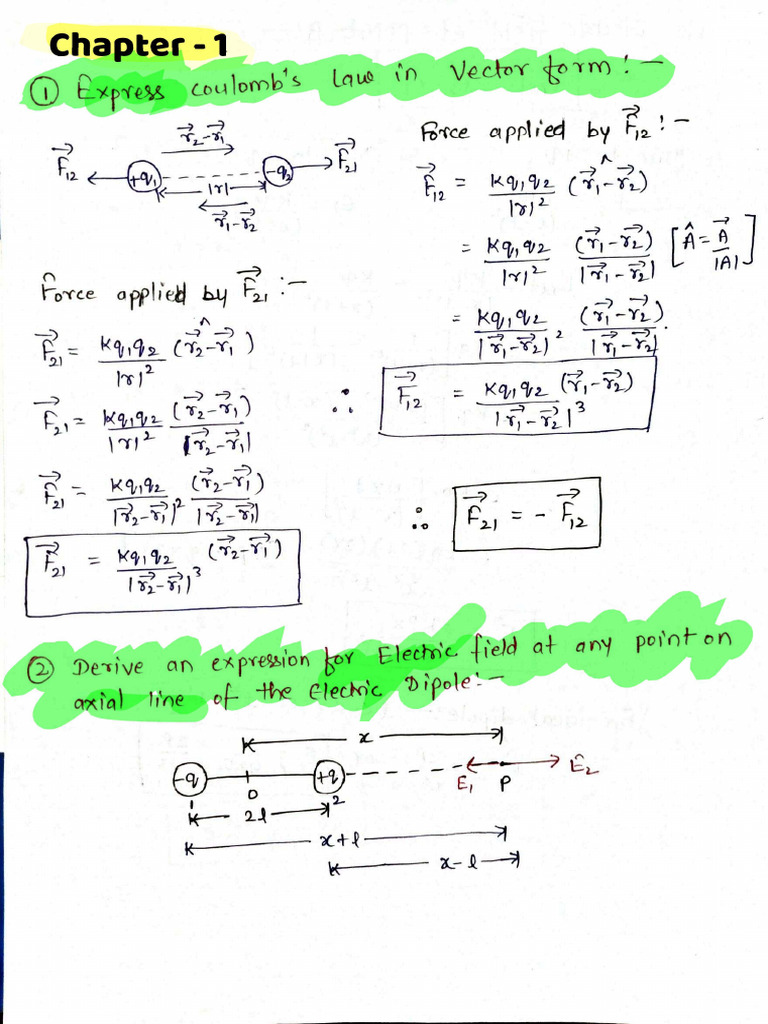 Chapter - 1
① Express coulomb's law in vector form :-
r⃗₂-r⃗₁
F⃗₁₂ +q₁ -q₂ F⃗₂₁
|r|
r⃗₁-r⃗₂
Force applied by F⃗₂₁ :-
F⃗₂₁ = Kq₁q₂/|r|² (r⃗₂-r⃗₁)^
F⃗₂₁ = Kq₁q₂/|r|² (r⃗₂-r⃗₁)/|r⃗₂-r⃗₁|
F⃗₂₁ = Kq₁q₂/|r⃗₂-r⃗₁|² (r⃗₂-r⃗₁)/|r⃗₂-r⃗₁|
F⃗₂₁ = Kq₁q₂/|r⃗₂-r⃗₁|³ (r⃗₂-r⃗₁)
Force applied by F⃗₁₂ :-
F⃗₁₂ = Kq₁q₂/|r|² (r⃗₁-r⃗₂)^
= Kq₁q₂/|r|² (r⃗₁-r⃗₂)/|r⃗₁-r⃗₂| [Â = A⃗/|A|]
= Kq₁q₂/|r⃗₁-r⃗₂|² . (r⃗₁-r⃗₂)/|r⃗₁-r⃗₂|.
∴ F⃗₁₂ = Kq₁q₂/|r⃗₁-r⃗₂|³ (r⃗₁-r⃗₂)
∴ F⃗₂₁ = - F⃗₁₂
② Derive an expression for Electric field at any point on
axial line of the Electric Dipole:-
x
-q +q E₁ P E⃗₂
O 2
2l
x+l
x-l